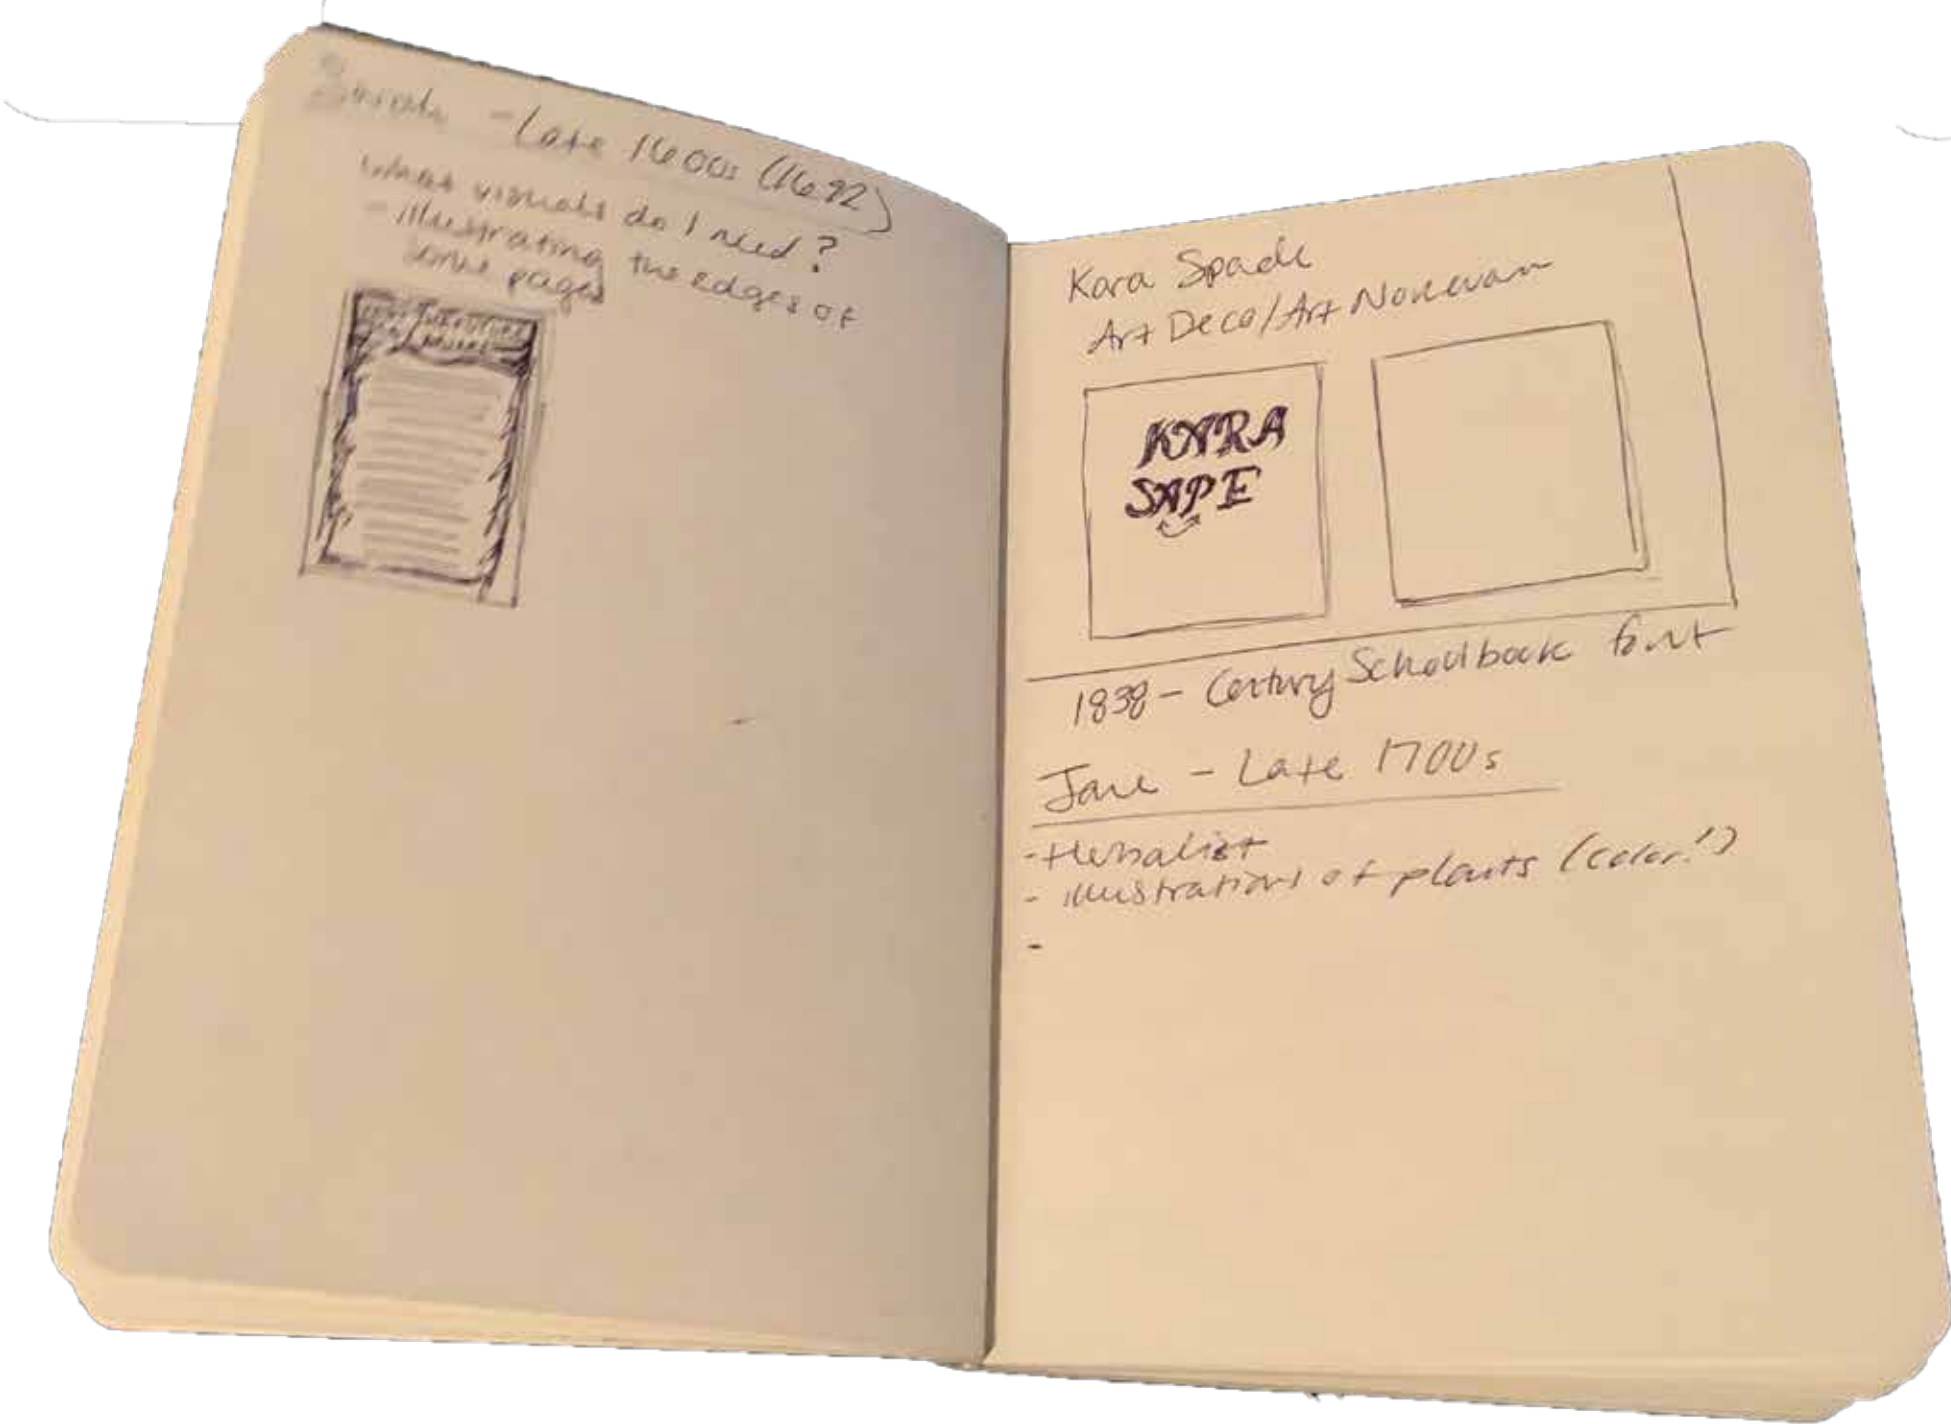 Sarah - Late 1600s (1692)
What visuals do I need?
- illustrating the edges of
some pages
Kara Spade
Art Deco/Art Nouveau
KARA
SAPE
1838 - Century Schoolbook font
Jane - Late 1700s
- Herbalist
- illustrations of plants (color!)
-